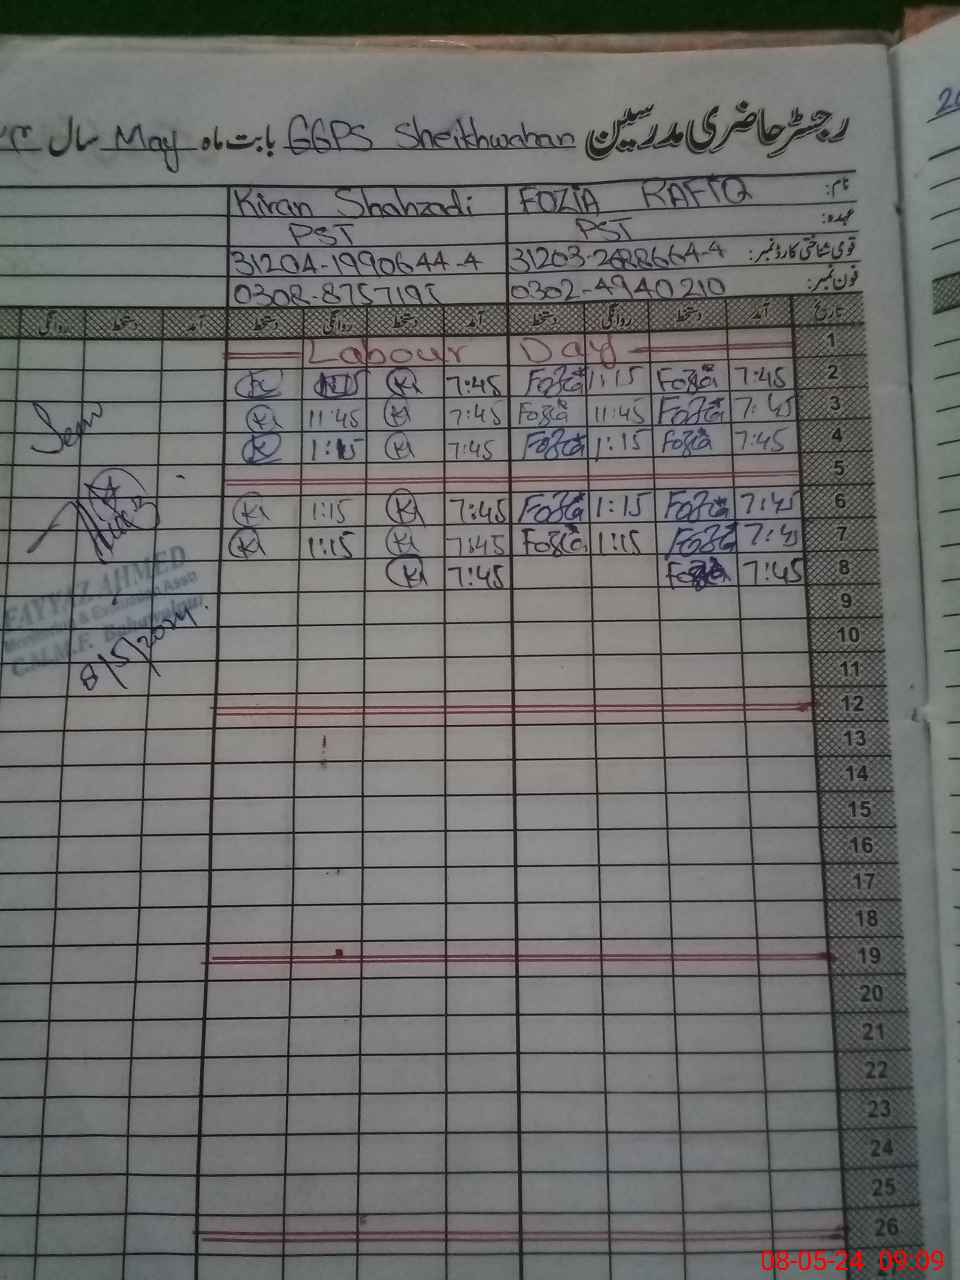 رجسٹر حاضری مدرسین GGPS Sheikhwahan بابت ماہ May سال
نام: FOZIA RAFIQ Kiran Shahzadi
عہدہ: PST PST
قومی شناختی کارڈ نمبر: 31204-1990644-4
فون نمبر: 0302-4940210 0308-8757195
تاریخ آمد دستخط روانگی دستخط آمد دستخط روانگی دستخط آمد دستخط روانگی
1 Labour Day
2 7:45 Fozia 11:15 Fozia 7:45 K
3 7:45 Fozia 11:45 Fozia 7:45 K 11:45 K
4 7:45 Fozia 1:15 Fozia 7:45 K 1:15 K
5
6 7:45 Fozia 1:15 Fozia 7:45 K 1:15 K
7 7:45 Fozia 1:15 Fozia 7:45 K 1:15 K
8 7:45 Fozia 7:45 K
Seen
FAYYAZ AHMED
Monitoring & Evaluation Asstt
C.M.M.F. Bahawalpur
8/5/2024
9
10
11
12
13
14
15
16
17
18
19
20
21
22
23
24
25
26
08-05-24 09:09